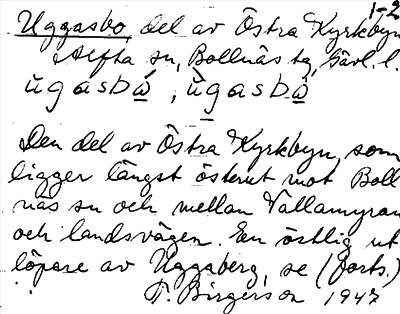 1-2
Uggasbo del av Östra Kyrkbyn
Alfta sn, Bollnäs tg, Gävl. l.
ùgasbώ̲, ùgasbὼ̲
Den del av Östra Kyrkbyn, som
ligger längst österut mot Boll
näs sn och mellan Vallamyran
och landsvägen. En östlig ut
löpare av Uggaberg, se (forts.)
T. Birgerson 1947